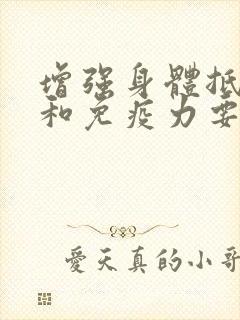 增强身體抵
和免疫力要
愛天真的小哥